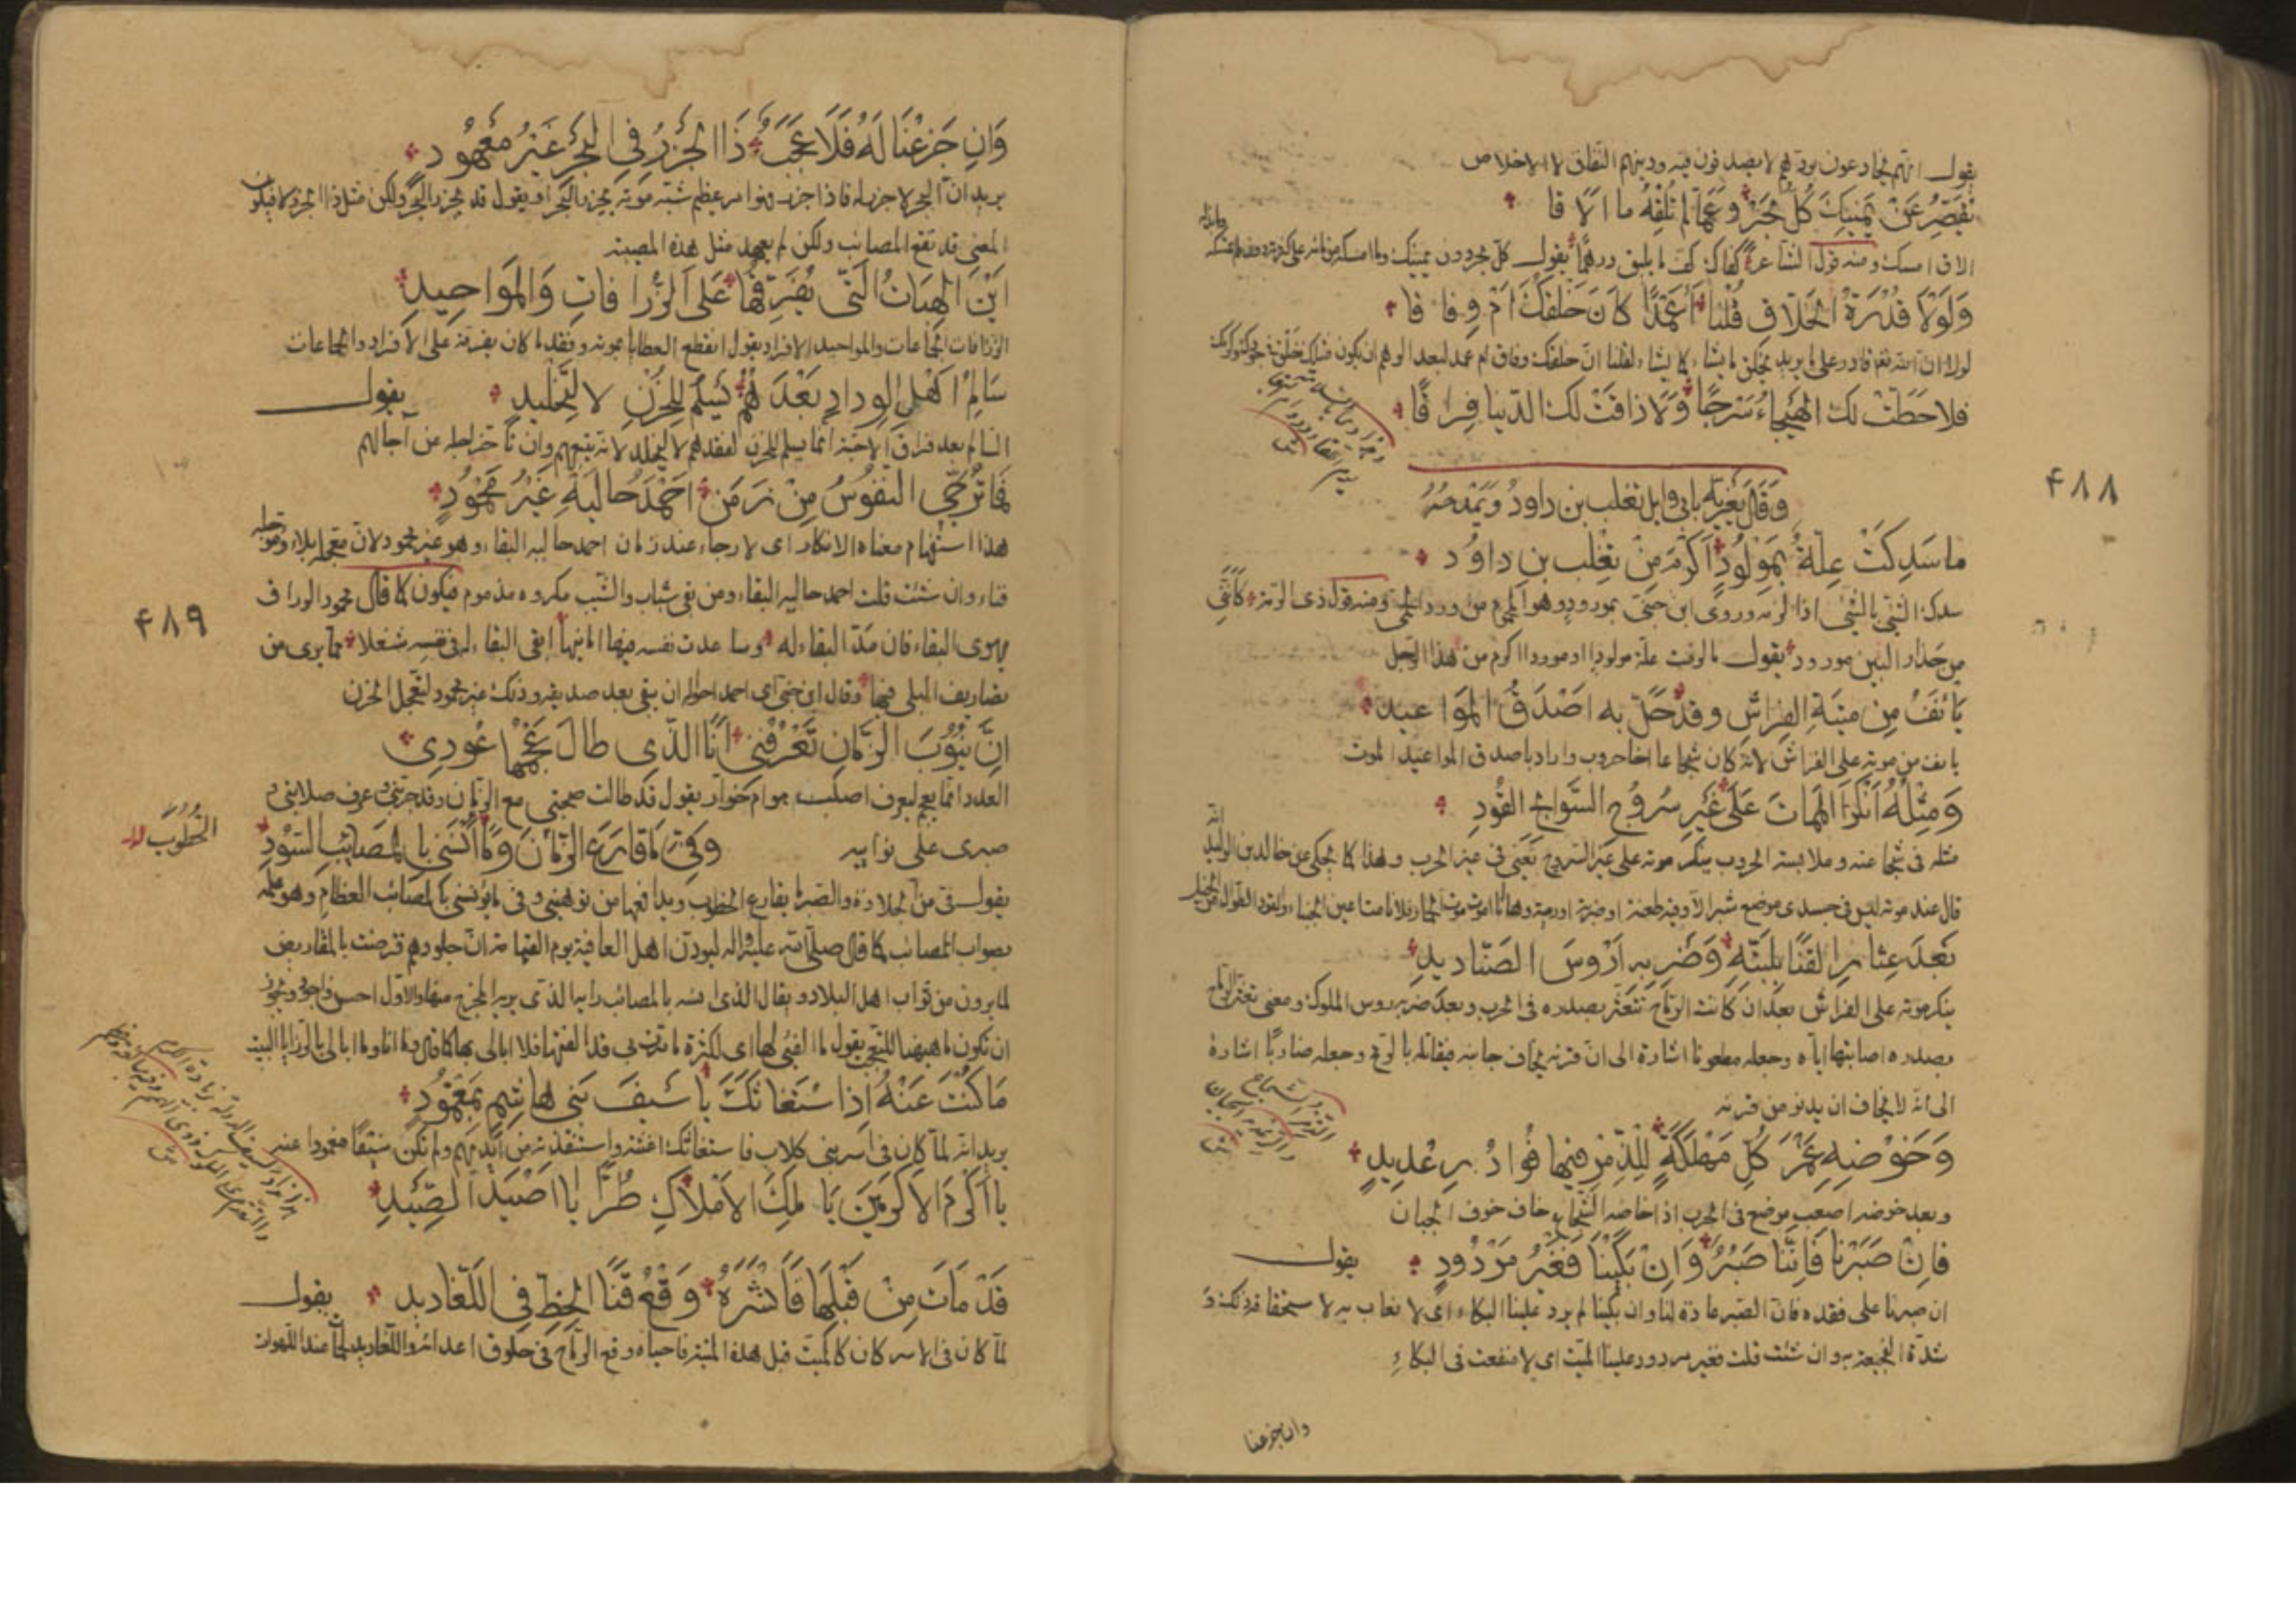 يقول انهم يخادعون بودهم لا يصدقون فيه ودينهم النفاق لا الاخلاص
تُقَصِّرُ عَنْ يَمِينِكَ كُلُّ بَحْرٍ وَعَمَّا لَمْ تُلِقْهُ ما أَلاقا
الاق امسك ومنه قول الشاعر كفاك كف ما يليق درهما يقول كل بحر دون يمينك
وَلَوْلا قُدْرَةُ الخَلّاقِ قُلْنا أَعَمْدًا كانَ خَلْقُكَ أَمْ وِفاقا
لولا ان الله تعالى قادر على ما يريد يخلق ما يشاء كما يشاء لقلنا ان خلقك وفاق ام عمد لبعد الوهم ان يكون
فلا حَطَّتْ لك الهَيْجاءُ سَرْجًا وَلا ذاقَتْ لك الدّنيا فِراقًا
وَقَالَ يُعَزِّيهِ بابي وايل تغلب بن داودَ وَيَمْدَحُهُ
۴۸۸
ما سَدِكَتْ عِلَّةٌ بِمَوْلُودٍ أَكْرَمَ مِنْ تَغْلِبَ بنِ داوُد
سدك الشئ بالشئ اذا لزمه وروى ابن جنى بمورود وهو المحموم من ورد الحمى ومنه قول ذى الرمة كأننى
من حذار البين مورود يقول ما لزمت علة مولودا او مورودا اكرم من هذا الرجل
يَأنَفُ مِن مِيتَةِ الفِراشِ وقد حَلَّ به أَصْدَقُ المَواعيد
يانف من موته على الفراش لانه كان شجاعا اخا حروب واراد باصدق المواعيد الموت
وَمِثْلُهُ أَنْكَرَ المَماتَ عَلَى غَيْرِ سُرُوجِ السَّوابِحِ القُودِ
مثله فى شجاعته وملابسته الحروب ينكر موته على غير السروج يعنى فى غير الحرب وهذا كما يحكى عن خالد بن الوليد انه
قال عند موته ليس فى جسدى موضع شبر الا وفيه طعنة او ضربة او رمية وها انا اموت موت الحمار فلا نامت اعين الجبناء والقود الطوال من الخيل
بَعْدَ عِثارِ القَنا بِلَبَّتِهِ وَضَرْبِهِ أَرْؤُسَ الصَّناديدِ
ينكر موته على الفراش بعد ان كانت الرماح تتعثر بصدره فى الحرب وبعد ضربه روس الملوك ومعنى تعثر الرماح
بصدره اصابتها اياه وجعله مطعونا اشارة الى ان قرنه يخاف جانبه فيقاتله بالرمح وجعله ضاربًا اشارة
الى انه لا يخاف ان يدنو من قرنه
وَخَوْضِهِ غَمْرَ كُلِّ مَهْلَكَةٍ لِلذِّمْرِ فيها فُؤادُ رِعْديدِ
وبعد خوضه اصعب موضع فى الحرب اذا خاضه الشجاع خاف خوف الجبان
فإِنْ صَبَرْنا فَإِنَّنا صُبُرٌ وَإِنْ بَكَيْنا فَغَيْرُ مَرْدُودِ يقول
ان صبرنا على فقده فان الصبر عادة لنا وان بكينا لم يرد علينا البكاء اى لا نعاب به لاستحقاقه ذلك
شدة الفجيعة به وان شئت قلت فغير مردود علينا الميت اى لا منفعت فى البكاءِ
وان جزعنا
وَإِن جَزِعْنا لَهُ فَلا عَجَبٌ ذَا الجَزْرُ فِي البَحْرِ غَيْرُ مَعْهُودِ
يريد ان البحر لا جزر له فاذا جزر فهو امر عظيم شبه موته بجزر البحر او يقول قد يجزر البحر ولكن مثل ذا الجزر لا فيكون
المعنى قد تقع المصائب ولكن لم يعهد مثل هذه المصيبة
أَيْنَ الهِباتُ الَّتي يُفَرِّقُها عَلى الزُّرافاتِ وَالمَواحيدِ
الزرافات الجماعات والمواحيد الافراد يقول انقطع العطايا بموته وفقد ما كان يفرقه على الافراد والجماعات
سَالِمُ أَهْلِ الوِدادِ بَعْدَهُمُ يَسْلَمُ لِلحُزْنِ لا لِتَخْليدِ يقول
السالم بعد فراق الاحبة انما يسلم للحزن لفقدهم لا ليخلد لانه يتبعهم وان تأخر اجله عن آجالهم
فَما تُرَجِّي النُفُوسُ مِنْ زَمَنٍ أَحْمَدُ حالَيْهِ غَيْرُ مَحْمُودِ
هذا استفهام معناه الانكار اى لا رجاء عند زمان احمد حاليه البقاء وهو غير محمود لان معجله بلاء ومؤجله
فناء وان شئت قلت احمد حاليه البقاء ومن بقى شاب والشيب مكروه مذموم فيكون كما قال محمود الوراق
۴۸۹
يهوى البقاء فان مد البقاء له وساعدت نفسه فيها امانيها ابقى البقاء له فى نفسه شغلا مما يرى من
تصاريف البلى فيها وقال ابن جنى اى احمد احواله ان يبقى بعد صديقه وذلك غير محمود لتعجل الحزن
إِنَّ نُيُوبَ الزَّمانِ تَعْرِفُني أَنا الَّذي طالَ عَجْمُها عُودي
العود انما يعجم ليعرف اصلب هو ام خوار يقول قد طالت صحبتى مع الزمان وقد جربنى وعرف صلابتى و
صبرى على نوائبه وَفِيَّ ما قارَعَ الزَّمانَ وَما آنَسَني بِالمَصائِبِ السُّودِ
الخُطُوبَ
يقول فى من الجلادة والصبر ما يقارع الخطوب ويدافعها من توهينى وفى ما يؤنسنى بالمصائب العظام وهو علمه
بصواب المصائب كما قال صلى الله عليه واله ليودن اهل العافية يوم القيامة ان جلودهم قرضت بالمقاريض
لما يرون من ثواب اهل البلاء ويقال الذى انسه بالمصائب رايه الذى يريه المخرج منها والاول احسن واجود ويجوز
ان تكون ما ههنا للتعجب يقول ما الفنى لها اى لكثرة ما تمر بى قد الفتها فلا ابالى بها كما قال وها انا وما ابالى بالرزايا البيت
مَا كُنْتَ عَنْهُ إِذا اسْتَغاثَكَ يا سَيْفَ بَنِي هاشِمٍ بِمَغْمُودِ
يريد انه لما كان فى اسر بنى كلاب فاستغاثك اغثته واستنقذته من ايديهم ولم تكن سيفا مغمودا عنه
يا أَكْرَمَ الأَكْرَمِينَ يا مَلِكَ الأَمْلاكِ طُرًّا يا أَصْيَدَ الصِّيدِ
قَدْ مَاتَ مِنْ قَبْلِهَا فَأَنْشَرَهُ وَقْعُ قَنَا الخَطِّ فِي اللَّغاديدِ يقول
لما كان فى الاسر كان كالميت قبل هذه الميتة فاحياه وقع الرماح فى حلوق اعدائه واللغاديد لحمات عند اللهوات